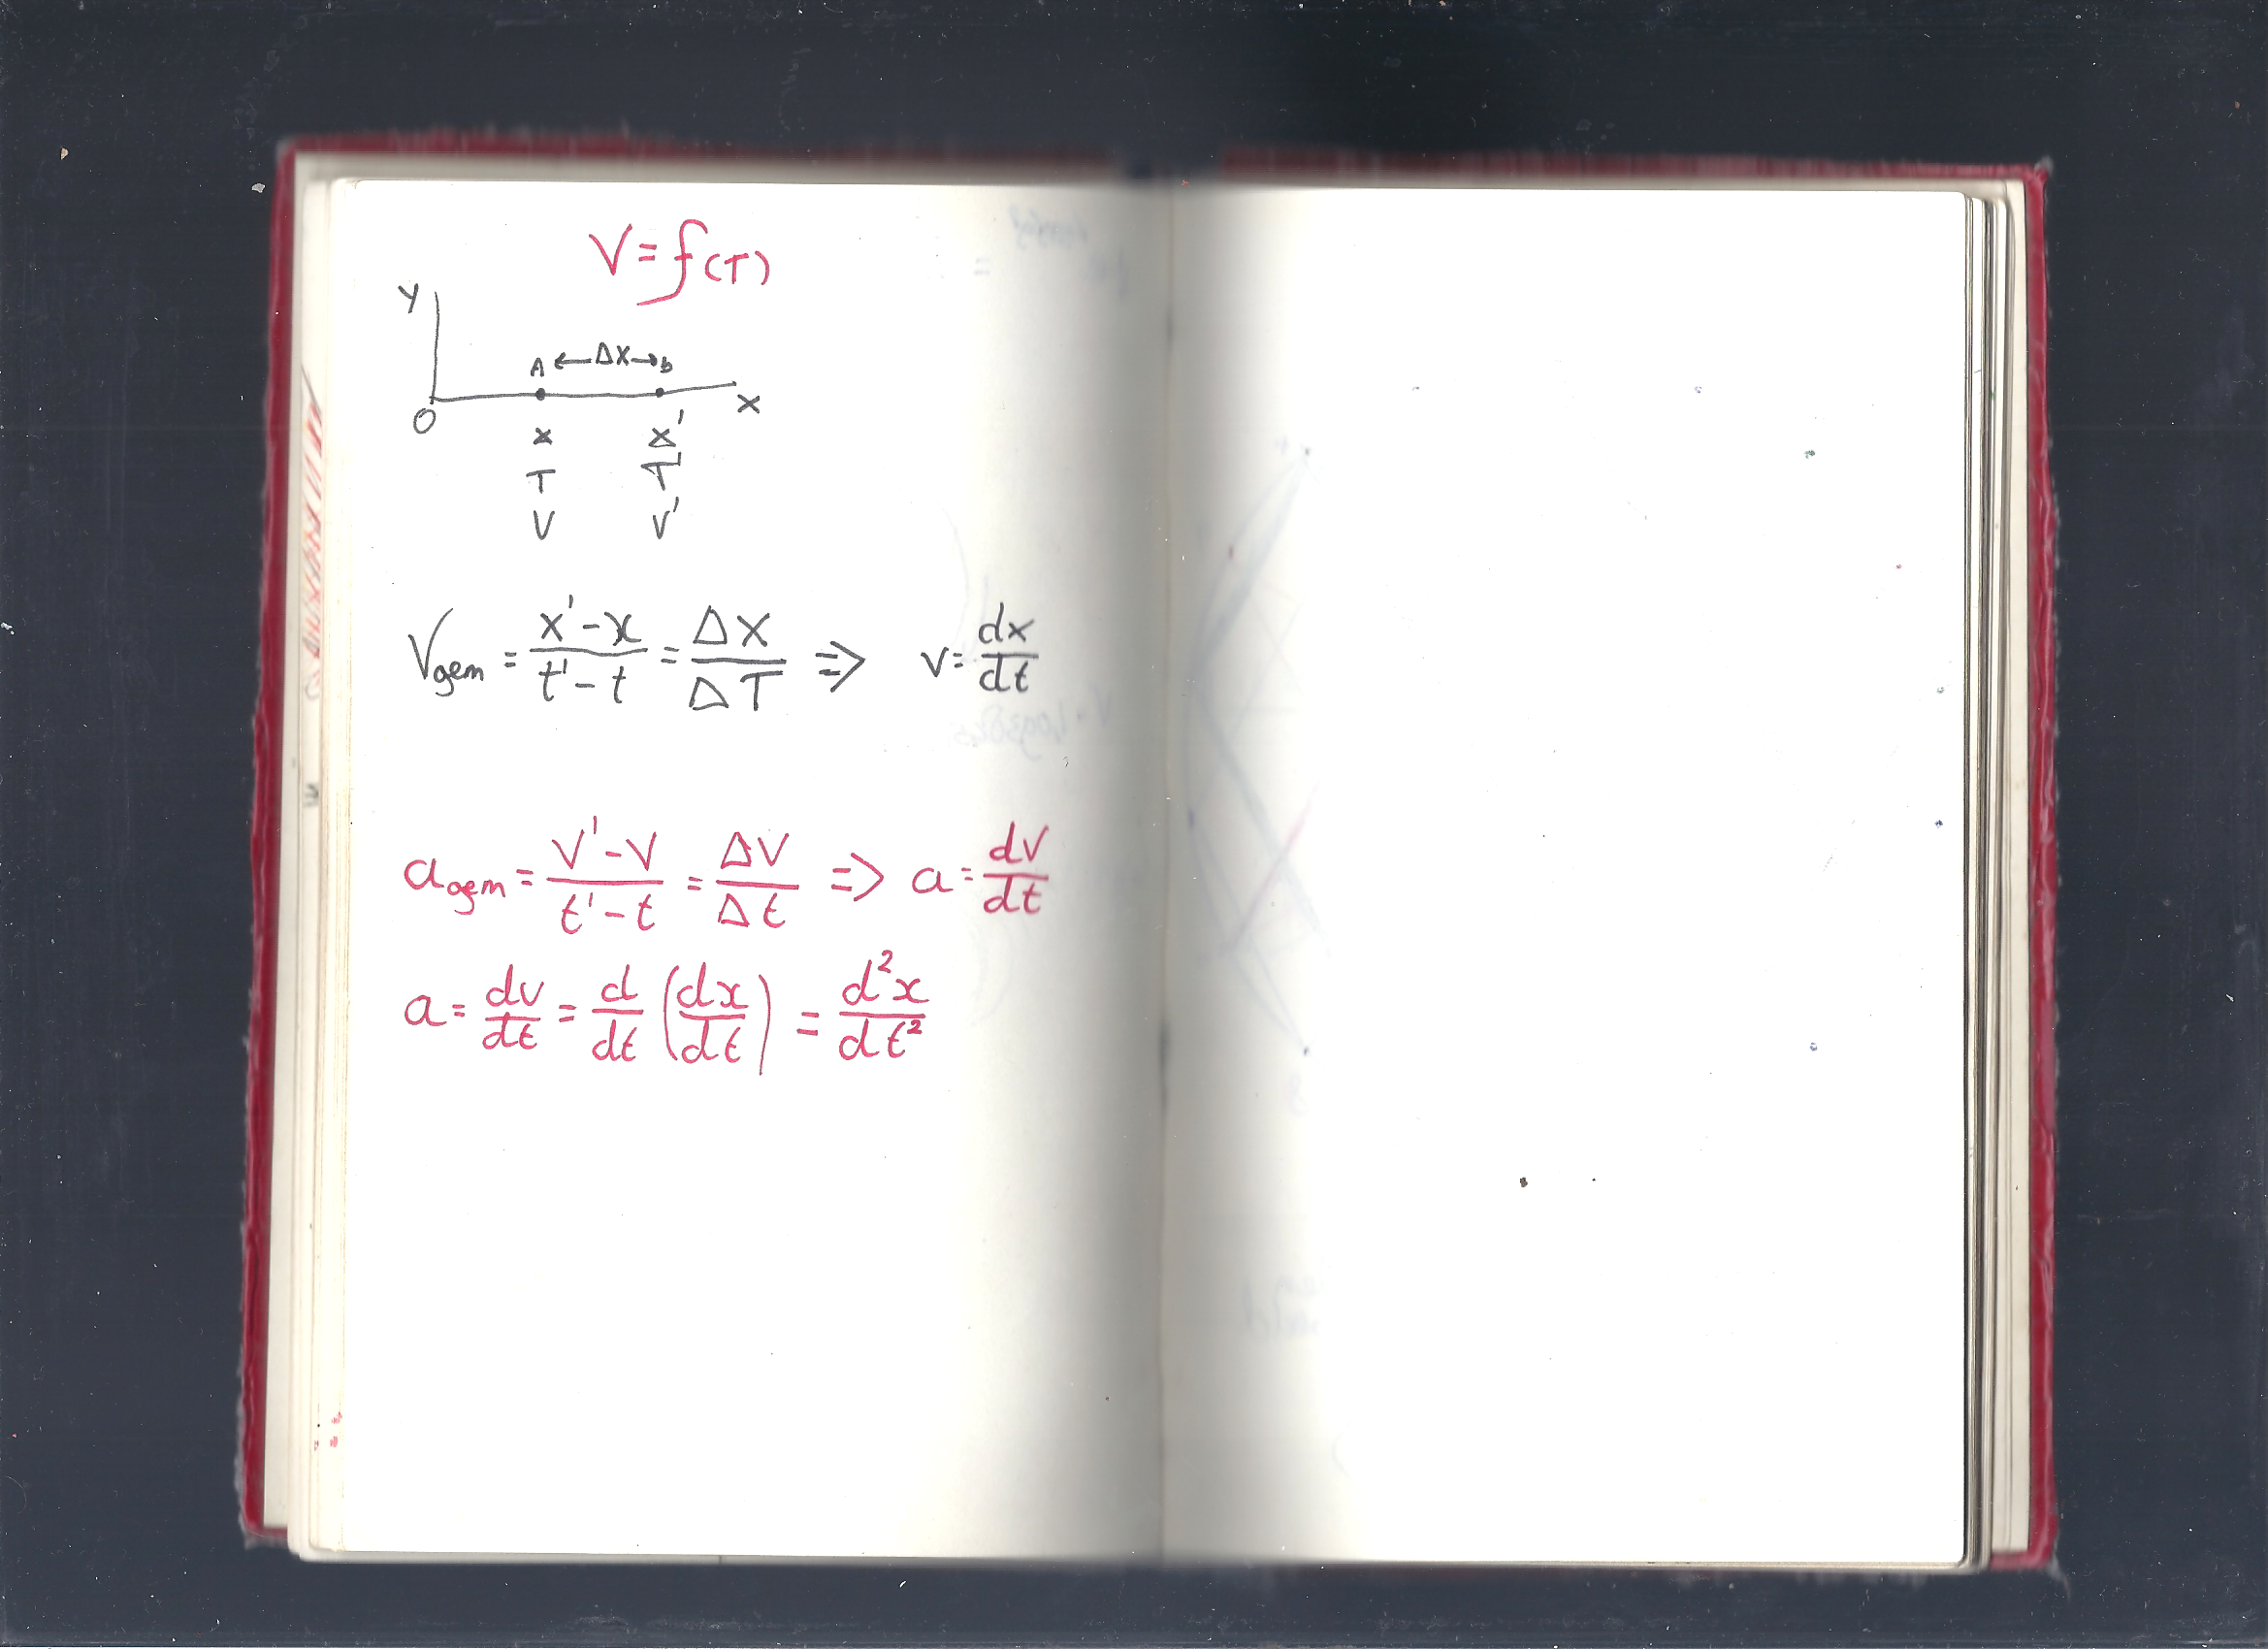 V = f(T)
Y
A ←ΔX→ b
O X
x x'
T T'
V V'
Vgem = x'-x / t'-t = ΔX / ΔT => v = dx/dt
agem = V'-V / t'-t = ΔV / Δt => a = dV/dt
a = dv/dt = d/dt (dx/dt) = d²x/dt²